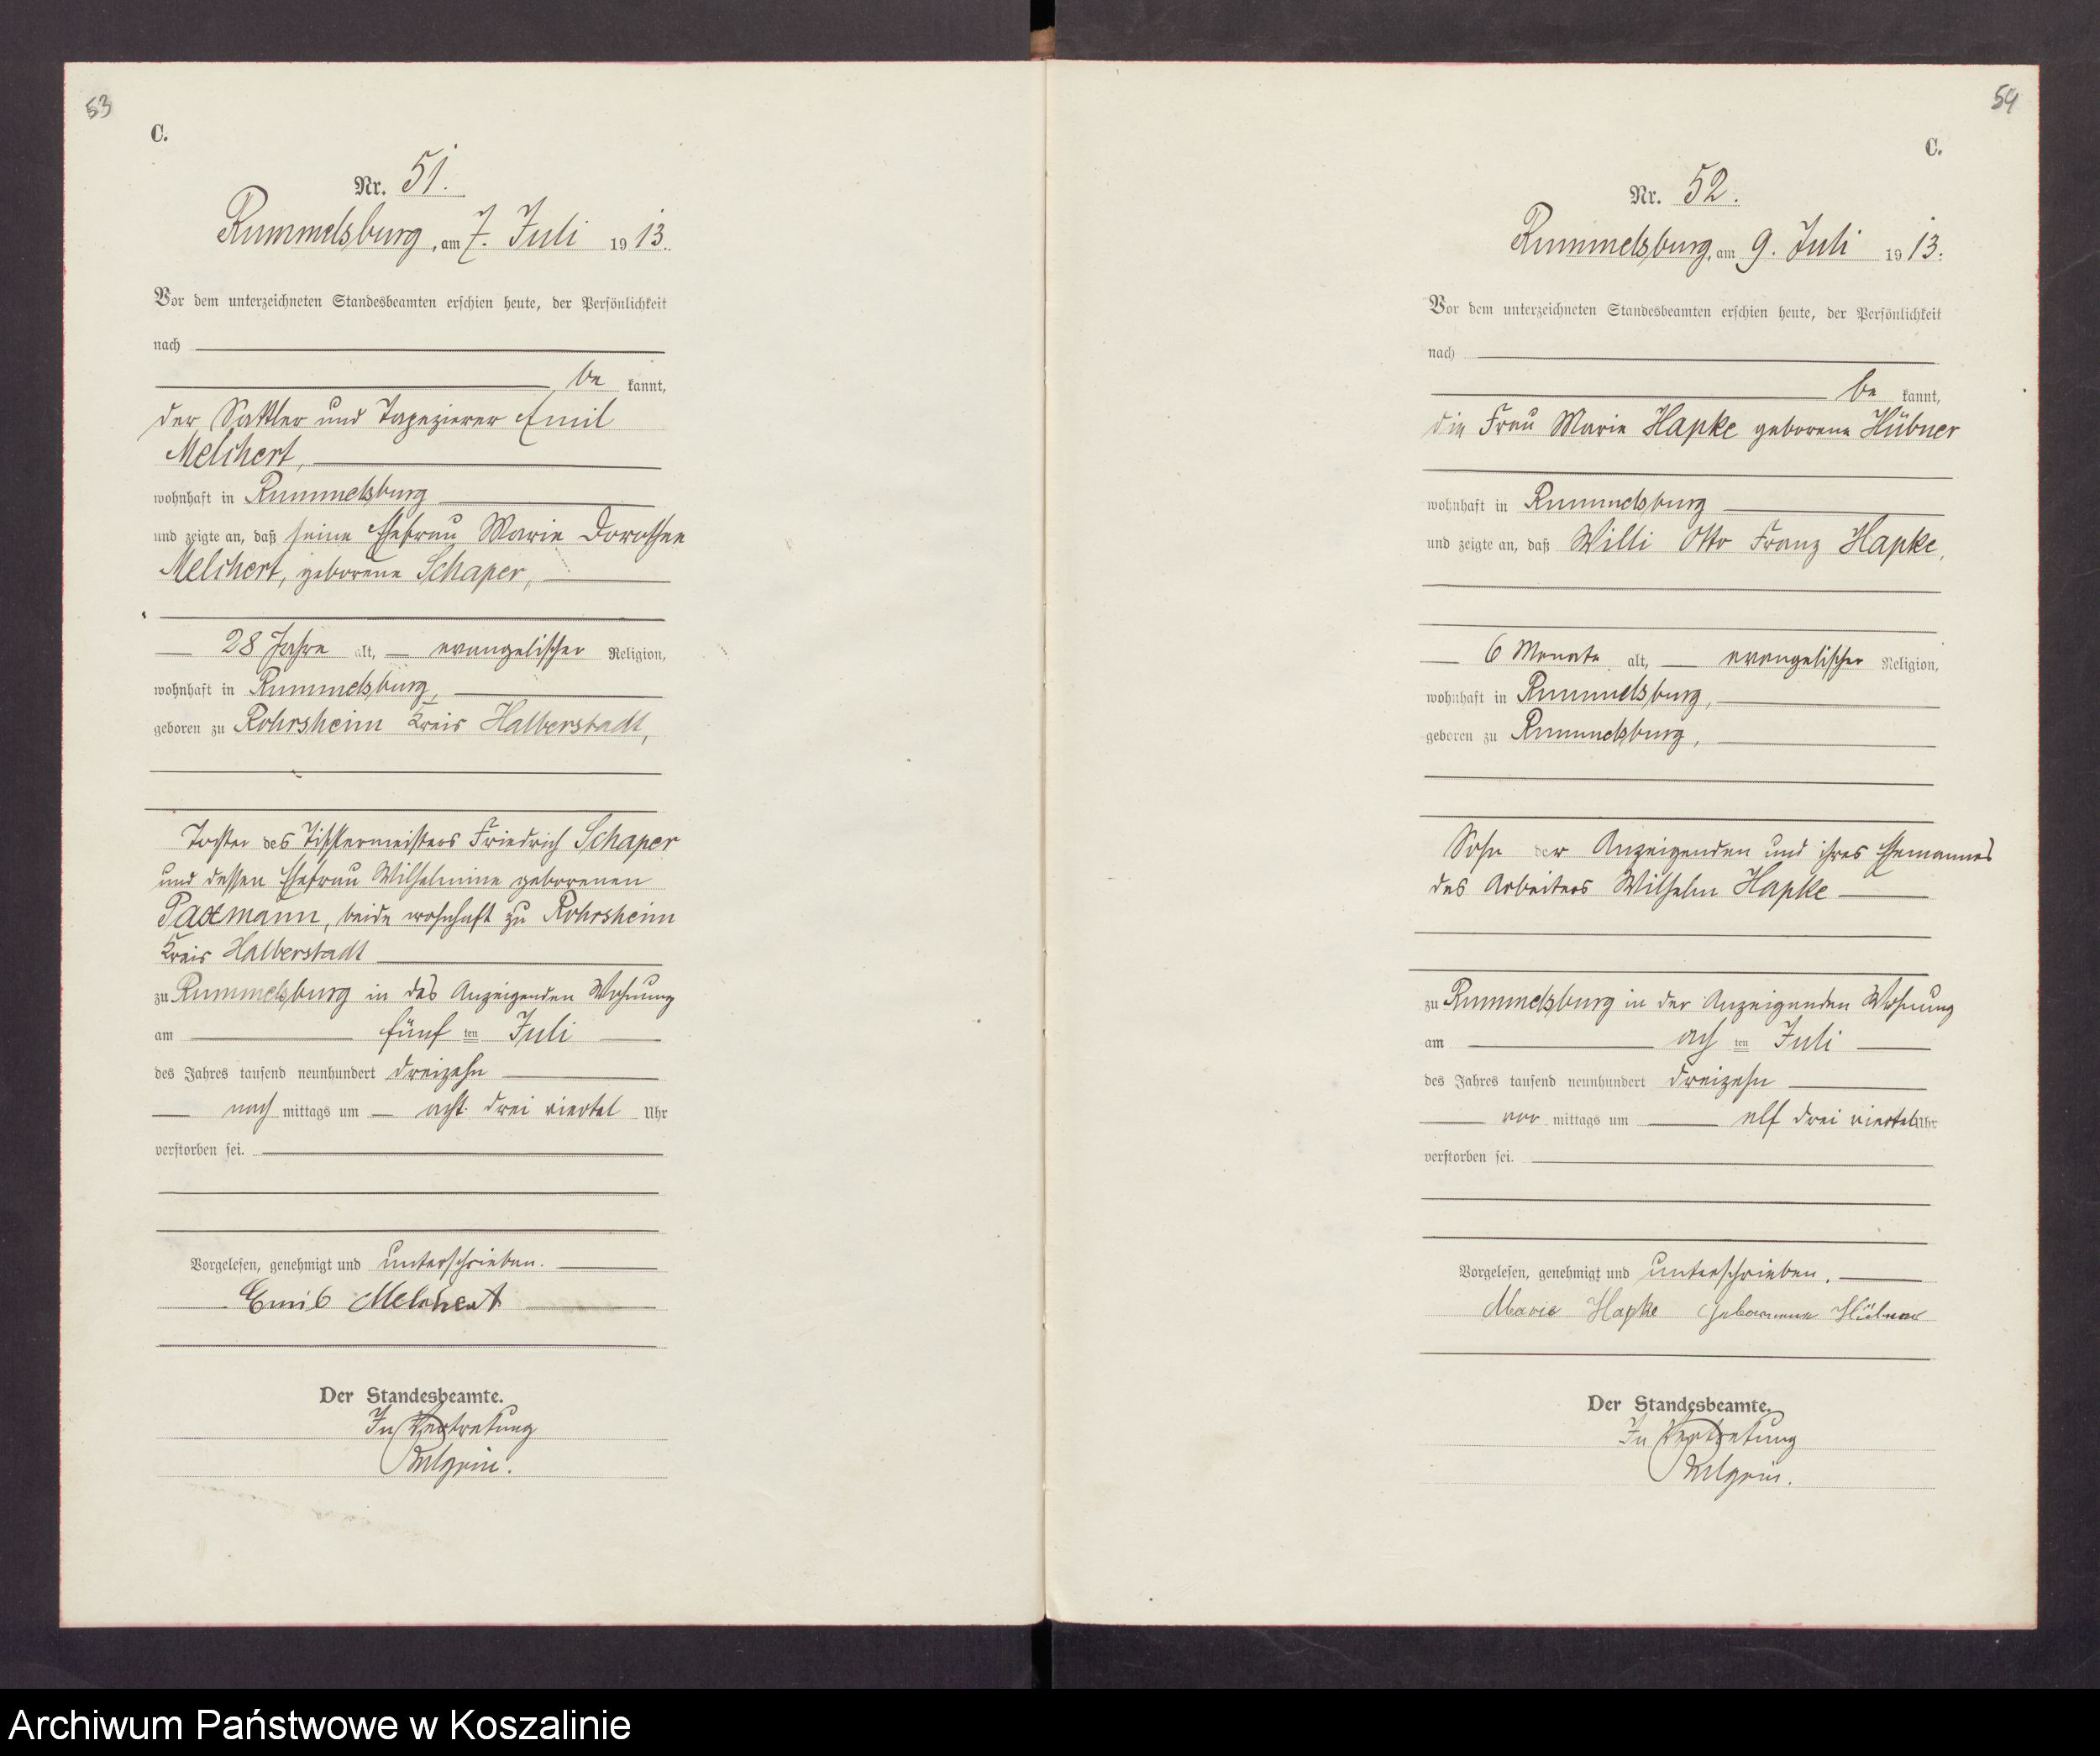 53
C.
Nr. 51.
Rummelsburg, am 7. Juli 1913.
Vor dem unterzeichneten Standesbeamten erschien heute, der Persönlichkeit
nach
be kannt,
der Sattler und Tapezierer Emil
Melchert,
wohnhaft in Rummelsburg
und zeigte an, daß seine Ehefrau Marie Dorothee
Melchert, geborene Schaper,
28 Jahre alt, evangelischer Religion,
wohnhaft in Rummelsburg,
geboren zu Rohrsheim Kreis Halberstadt,
Tochter des Tischlermeisters Friedrich Schaper
und dessen Ehefrau Wilhelmine geborenen
beide wohnhaft zu Rohrsheim
Kreis Halberstadt
zu Rummelsburg in des Anzeigenden Wohnung
am fünf ten Juli
des Jahres tausend neunhundert dreizehn
nach mittags um acht drei viertel Uhr
verstorben sei.
Vorgelesen, genehmigt und unterschrieben.
Emil Melchert
Der Standesbeamte.
In Vertretung
54
C.
Nr. 52.
Rummelsburg, am 9. Juli 1913.
Vor dem unterzeichneten Standesbeamten erschien heute, der Persönlichkeit
nach
be kannt,
die Frau Marie Hapke geborene Hübner
wohnhaft in Rummelsburg
und zeigte an, daß Willi Otto Franz Hapke,
6 Monate alt, evangelischer Religion,
wohnhaft in Rummelsburg,
geboren zu Rummelsburg,
Sohn der Anzeigenden und ihres Ehemannes
des Arbeiters Wilhelm Hapke
zu Rummelsburg in der Anzeigenden Wohnung
am ach ten Juli
des Jahres tausend neunhundert dreizehn
vor mittags um elf drei viertel Uhr
verstorben sei.
Vorgelesen, genehmigt und unterschrieben.
Marie Hapke geborene Hübner
Der Standesbeamte.
In Vertretung
Archiwum Państwowe w Koszalinie